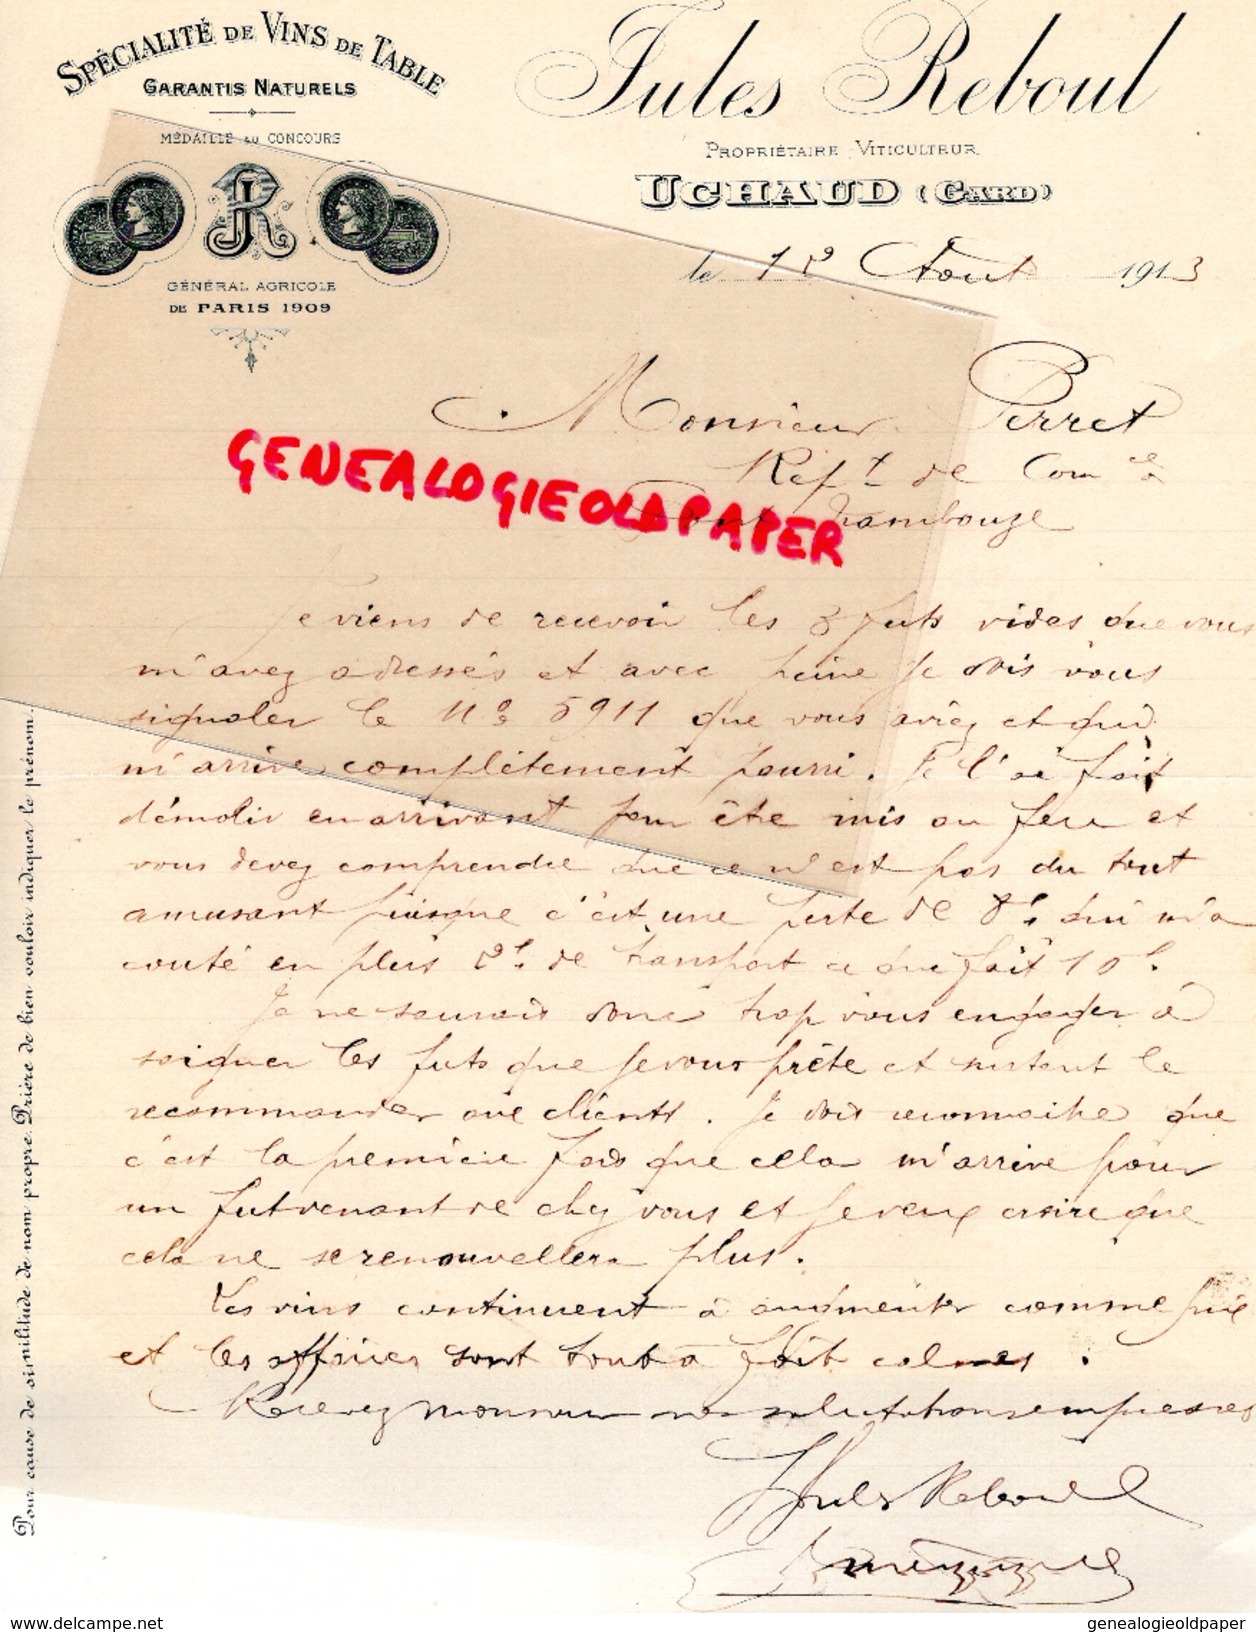 SPÉCIALITÉ DE VINS DE TABLE
GARANTIS NATURELS
MÉDAILLÉ AU CONCOURS
JR
GÉNÉRAL AGRICOLE
DE PARIS 1909
Jules Reboul
PROPRIÉTAIRE VITICULTEUR
UCHAUD (GARD)
le Août 1913
Monsieur Perret
de Com ce à
Pont Trambouze
GENEALOGIEOLDPAPER
Je viens de recevoir les 3 futs vides que vous
m'avez adressés et avec peine je dois vous
signaler le No 5911 que vous aviez et qui
m'arrive complètement pourri. Je l'ai fait
démolir en arrivant pour être mis au feu et
vous devez comprendre que ce n'est pas du tout
amusant puisque c'est une perte de 8f. qui m'a
couté en plus 2f. de transport ce que fait 10f.
Je ne saurais donc trop vous engager à
soigner les futs que je vous prête et surtout le
recommander aux clients. Je dois reconnaitre que
c'est la première fois que cela m'arrive pour
un fut venant de chez vous et je veux croire que
cela ne se renouvellera plus.
Les vins continuent à augmenter comme prix
et les affaires sont tout à fait calmes.
Recevez Monsieur mes salutations empressées
Jules Reboul
Pour cause de similitude de nom propre. Prière de bien vouloir indiquer le prénom.
www.delcampe.net
genealogieoldpaper